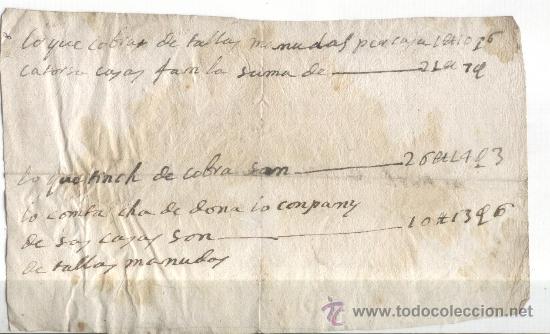 lo que cobian de tallas manudas per casa 1#10ꝯ6
catorse casas fan la suma de —— 21# 7ꝯ
lo que tinch de cobra san —— 26#14ꝯ3
lo comta cha de dona lo conpany
de sas casas son —— 10#13ꝯ6
de tallas manudas
www.todocoleccion.net